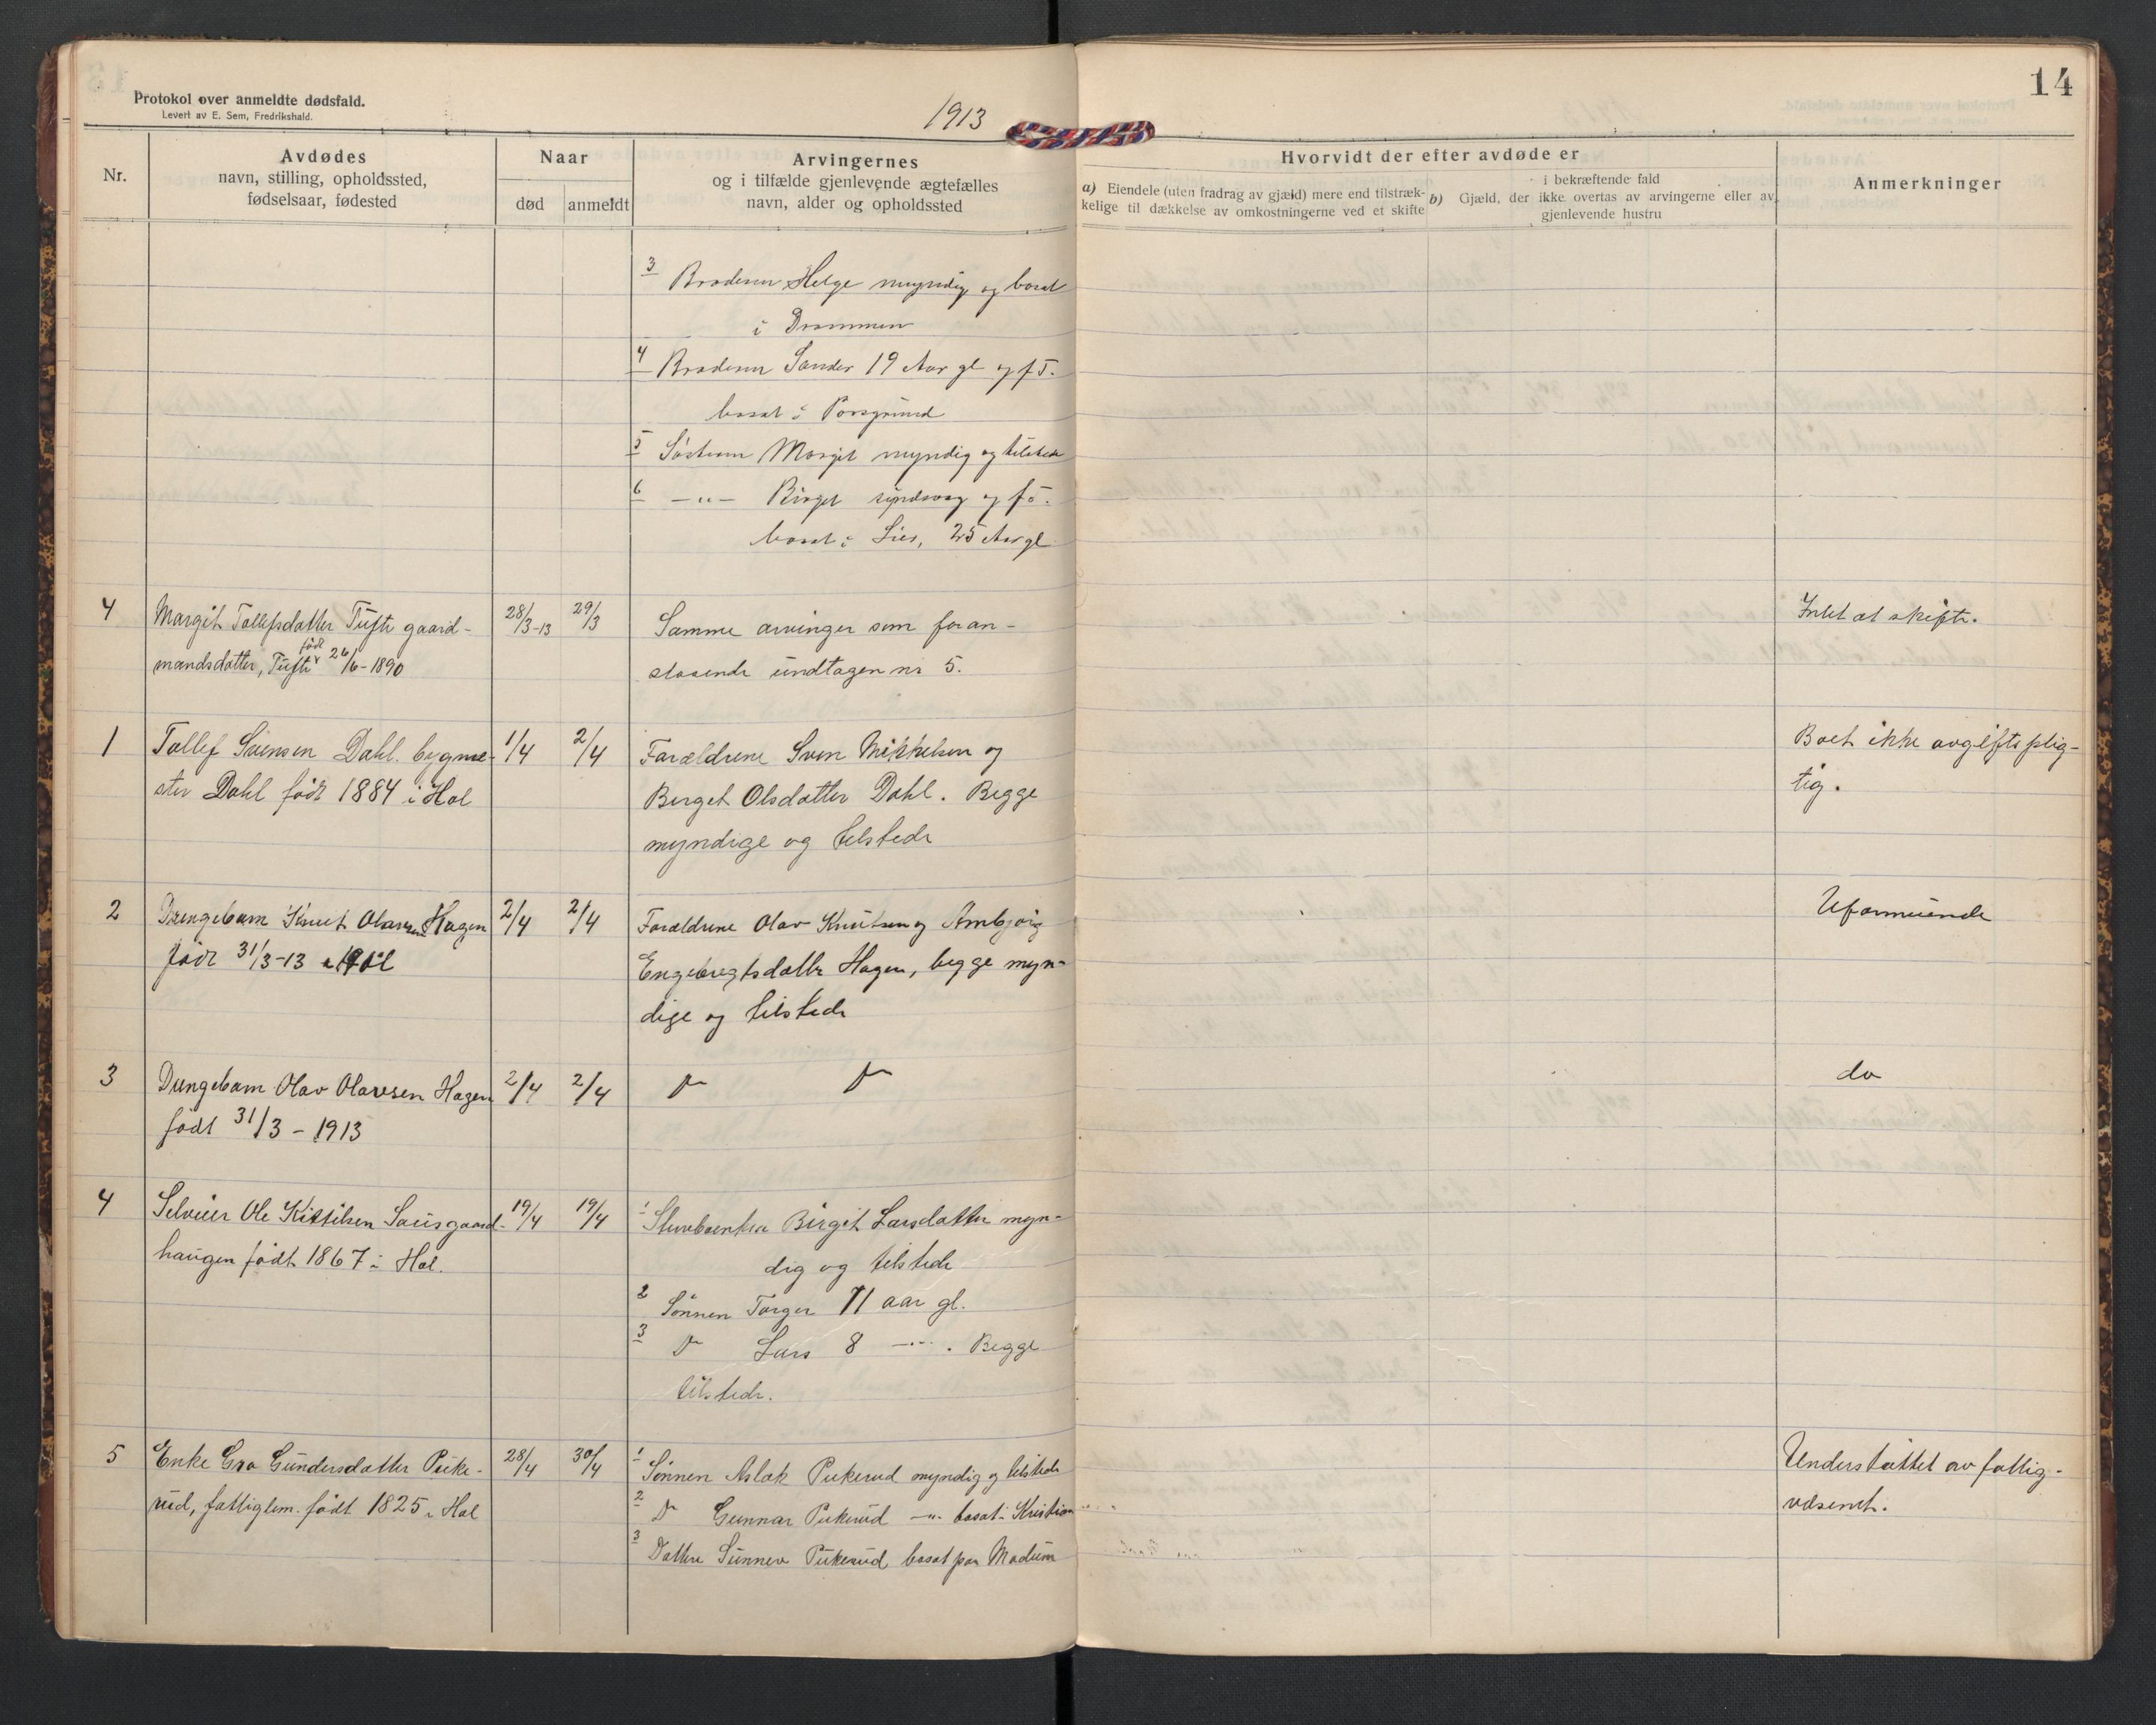 Protokol over anmeldte dødsfald.
Levert av E. Sem, Fredrikshald.
1913
14
Nr.
Avdødes
navn, stilling, opholdssted,
fødselsaar, fødested
Naar
død
anmeldt
Arvingernes
og i tilfælde gjenlevende ægtefælles
navn, alder og opholdssted
Hvorvidt der efter avdøde er
a) Eiendele (uten fradrag av gjæld) mere end tilstræk-
kelige til dækkelse av omkostningerne ved et skifte
i bekræftende fald
b) Gjæld, der ikke overtas av arvingerne eller av
gjenlevende hustru
Anmerkninger
3 Broderen Helge myndig og bosat
i Drammen
4 Broderen Sander 19 Aar gl og f.T.
bosat i Porsgrund
5 Søsteren Margit myndig og tilstede
6 -"- Birgit og f.T.
bosat i Lier, 25 Aar gl
4
Margit Tollefsdatter Tufte gaard-
mandsdatter, Tufte født 26/6-1890
28/3-13
29/3
Samme arvinger som foran-
staaende undtagen nr 5.
Intet at skifte.
1
Tollef Svensen Dahl. bygme-
ster Dahl født 1884 i Hol
1/4
2/4
Forældrene Sven Mikkelsen og
Berget Olsdatter Dahl. Begge
myndige og tilstede
Boet ikke avgiftsplig-
tig.
2
Drengebarn Knut Olavsen Hagen
født 31/3-13 i Hol
2/4
2/4
Forældrene Olav Knutsen og Ambjørg
Engebregtsdatter Hagen, begge myn-
dige og tilstede
Uformuende
3
Drengebarn Olav Olavsen Hagen
født 31/3-1913
2/4
2/4
do
4
Selveier Ole Kittilsen Sausgaard-
haugen født 1867 i Hol.
19/4
19/4
1 Stervboenken Birgit Larsdatter myn-
dig og tilstede
2 Sønnen Torger 11 aar gl.
3 D Lars 8 -"-. Begge
tilstede.
5
Enke Gro Gundersdatter Puke-
rud, fattiglem. født 1825 i Hol
28/4
30/4
1 Sønnen Aslak Pukerud myndig og tilstede
2 D Gunnar Pukerud -"- bosat i Kristian
3 Datter Sunnev Pukerud bosat paa Modum
Understøttet av fattig-
væsenet.